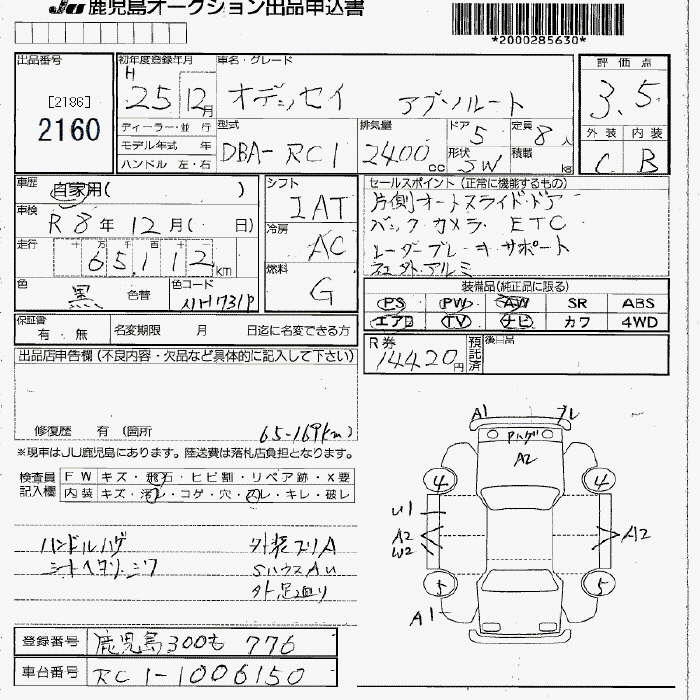 JU 鹿児島オークション出品申込書
*2000285630*
出品番号
[2186]
2160
初年度登録年月
H 25年 12月
ディーラー・並 行
モデル年式 年
ハンドル 左・右
車名・グレード
オデッセイ アブソルート
型式
DBA-RC1
排気量
2400cc
ドア
5
形状
SW
定員
8人
積載
kg
評価点
3.5
外装 内装
C B
車歴
自家用( )
車検
R 8年 12月( 日)
走行
十万千百十
65,112km
色
黒
色替
色コード
NH731P
シフト
IAT
冷房
AC
燃料
G
セールスポイント(正常に機能するもの)
片側オートスライドドア
バックカメラ ETC
レーダーブレーキサポート
社外アルミ
装備品(純正品に限る)
PS PW AW SR ABS
エアB TV ナビ カワ 4WD
保証書
有・無
名変期限 月 日迄に名変できる方
R券
14420円
預託済
後日品
出品店申告欄(不良内容・欠品など具体的に記入して下さい)
修復歴 有 (箇所
65-169km)
※現車はJU鹿児島にあります。陸送費は落札店負担となります。
検査員記入欄
FW キズ・飛石・ヒビ割・リペア跡・X要
内装 キズ・汚レ・コゲ・穴・スレ・キレ・破レ
ハンドルハゲ
シートヘタリ・シワ
外装スリA
外足廻り
A1
A2
4 4
U1
A2
W2
A2
5 5
A1
登録番号
鹿児島300も 776
車台番号
RC1-1006150